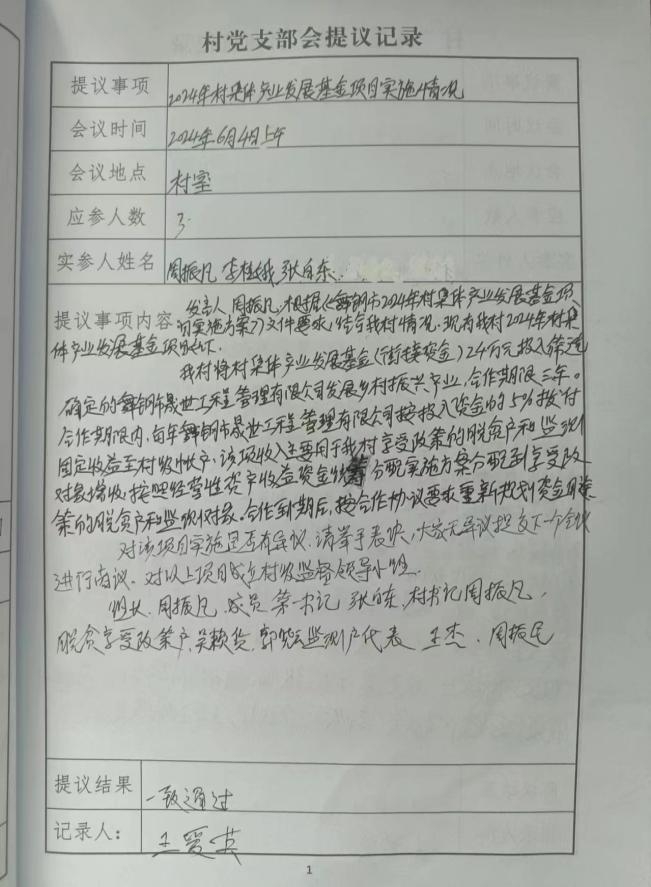 村党支部会提议记录
提议事项 2024年村集体产业发展基金项目实施情况
会议时间 2024年6月4日上午
会议地点 村室
应参人数 3
实参人姓名 周振凡 李桂娥 张自东
提议事项内容 发言人 周振凡, 根据《舞钢市2024年村集体产业发展基金项
目实施方案》文件要求,结合我村情况,现有我村2024年村集
体产业发展基金项目如下.
我村将村集体产业发展基金(衔接资金)24万元投入筛选
确定的舞钢市晟世工程管理有限公司发展乡村振兴产业,合作期限三年。
合作期限内,每年舞钢市晟世工程管理有限公司按投入资金的5%拨付
固定收益至村级帐户,该项收入主要用于我村享受政策的脱贫户和监测
对象增收,按照经营性资产收益资金 分配实施方案分配到享受政
策的脱贫户和监测对象。合作到期后,按合作协议要求重新规划资金用途
对该项目实施是否有异议,请举手表决,大家无异议提交下一个会议
进行商议。对以上项目成立村级监督领导小组.
组长 周振凡, 成员 第一书记 张自东, 村书记周振凡,
脱贫享受政策户, 监测户代表 王杰、周振民
提议结果 一致通过
记录人: 王爱英
1